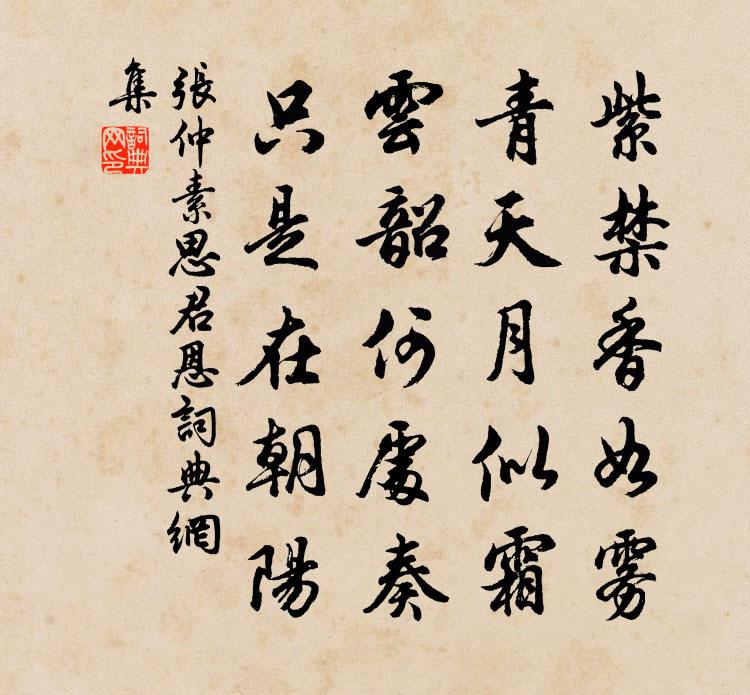 紫禁香如雾
青天月似霜
雲韶何處奏
只是在朝陽
張仲素思君恩詞典網
集
詞典
网印